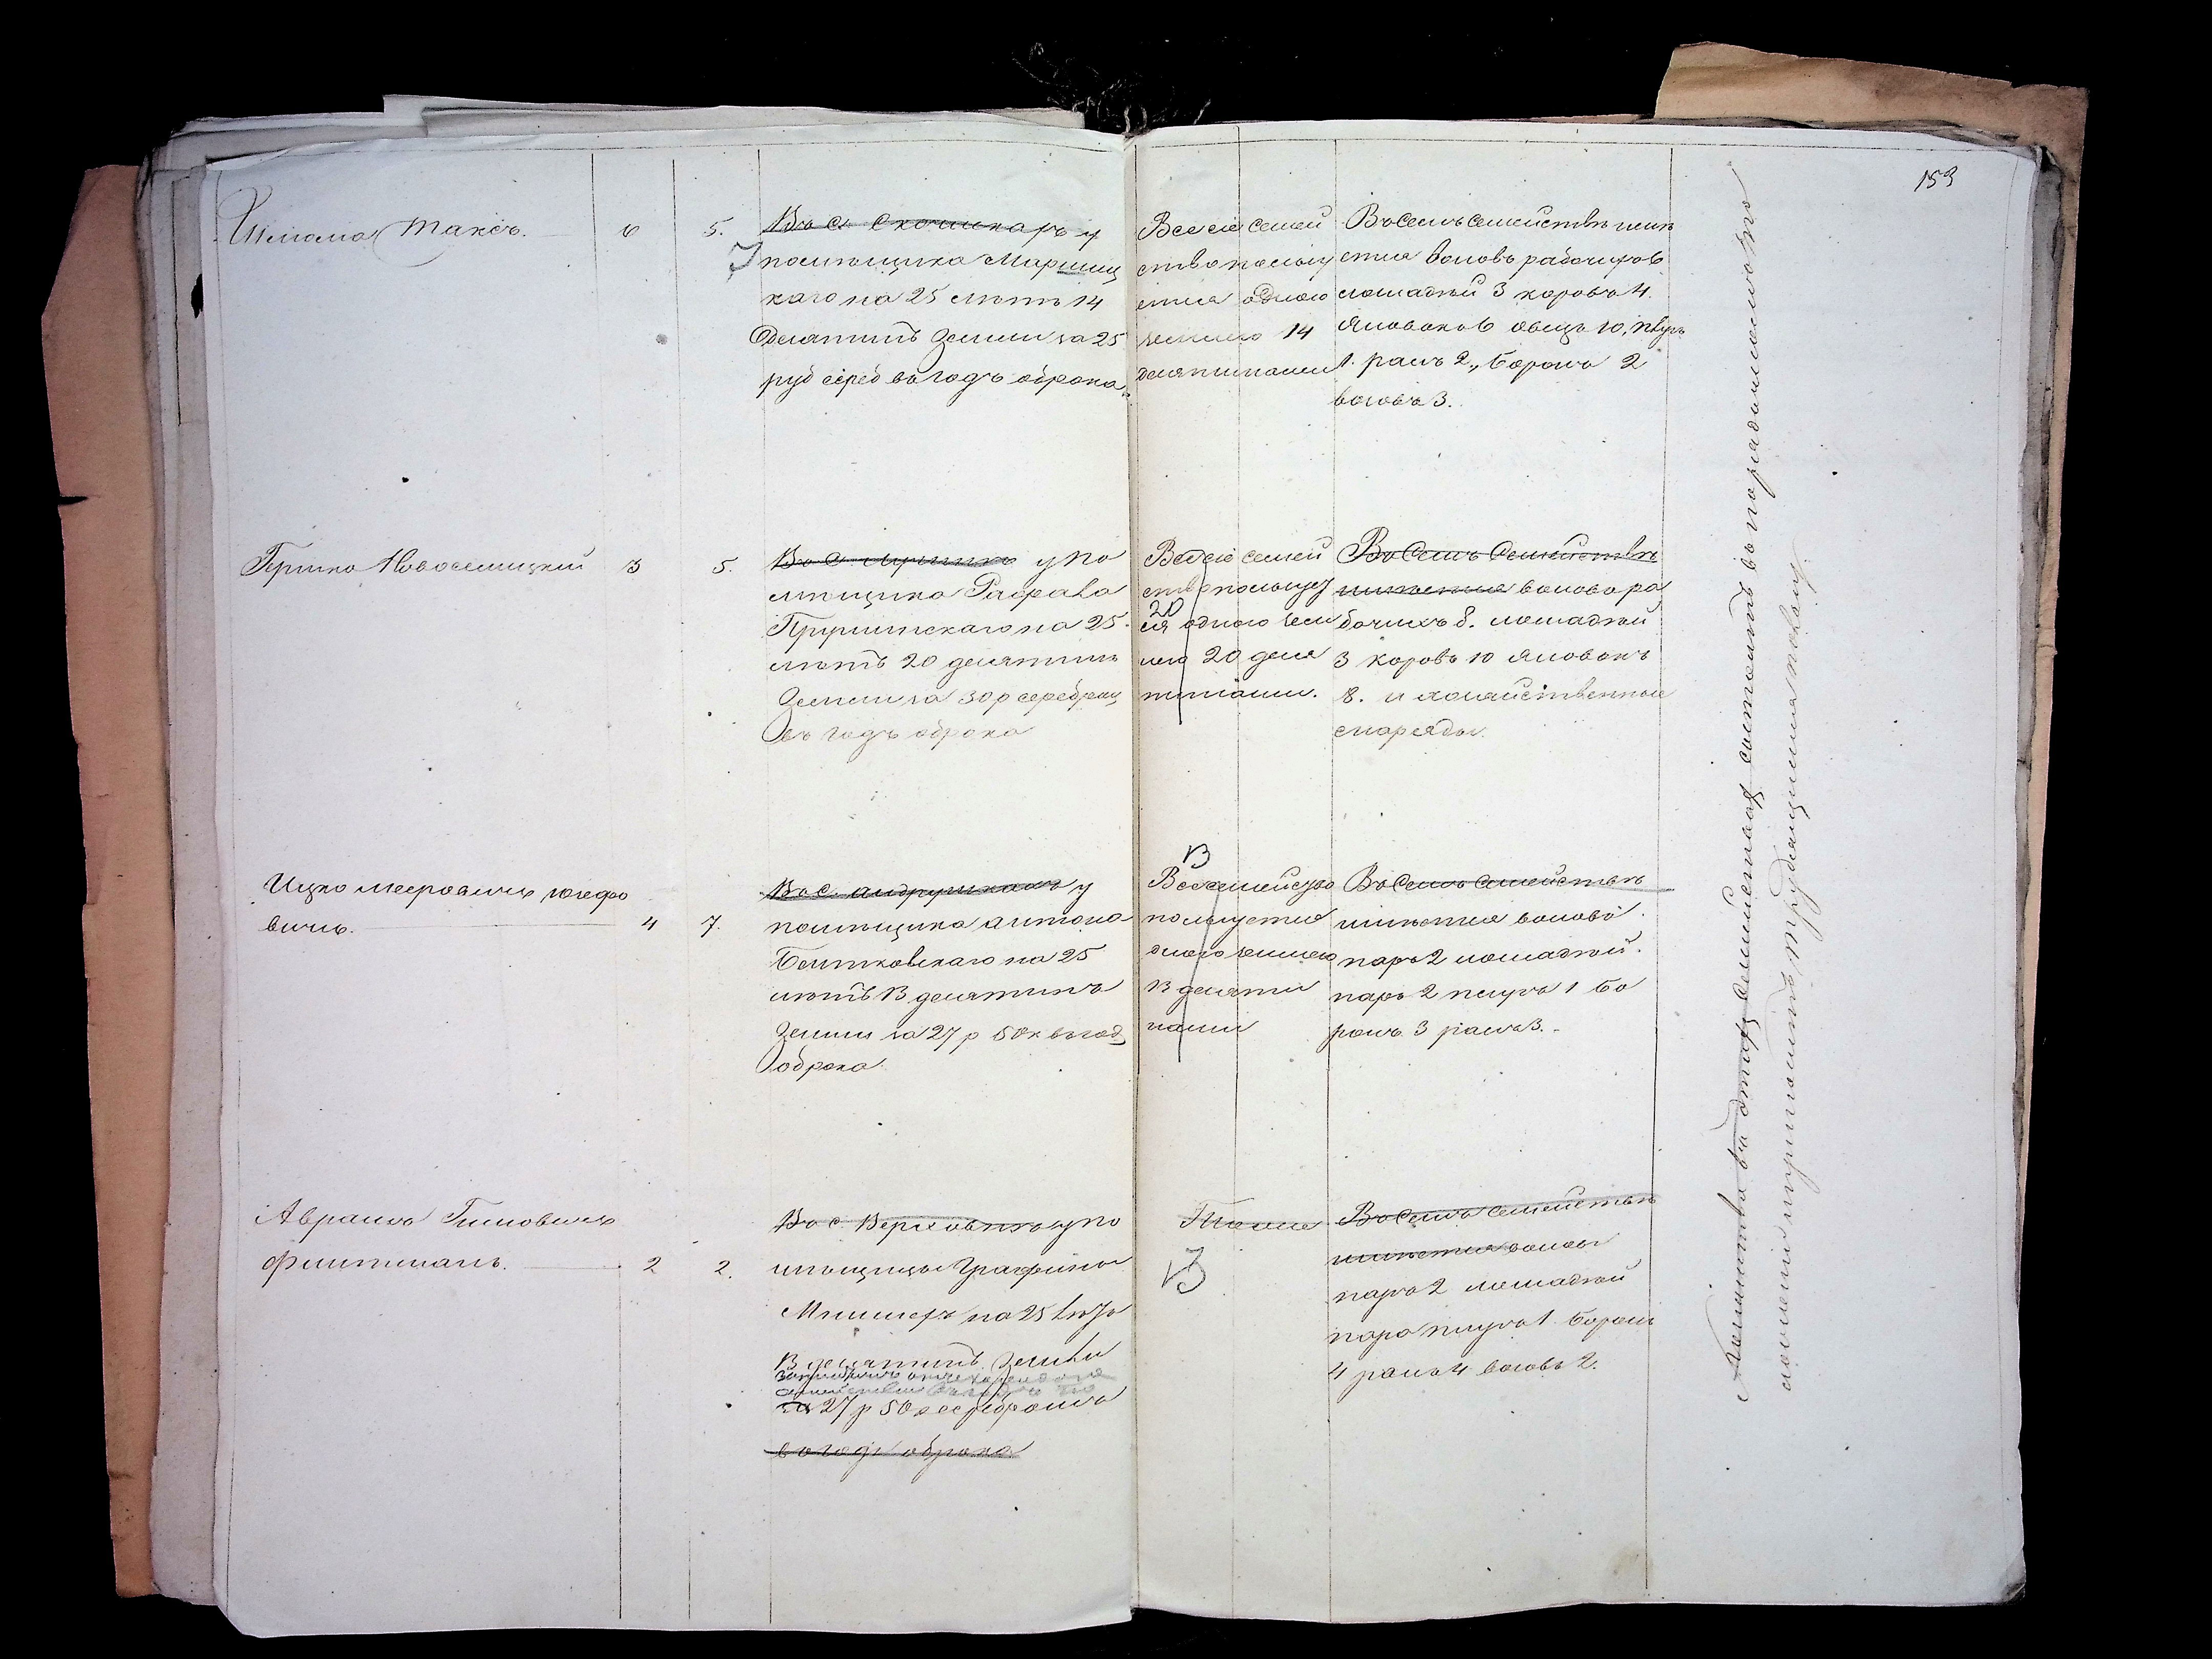 153
Шлiома Таксъ. 6 5.
Въ с. Скочискахъ у
помѣщика Мариннц
каго на 25 лѣтъ 14
десятинъ земли за 25
руб сереб въ годъ оброка.
Все сіе семей
ство пользу
ется одною
землею 14
десятинами
Въ семъ семействѣ имѣ
ется воловъ рабочихъ 6
лошадей 3 коровъ 4.
Яловокъ 6 овецъ 10, плугъ
1. ралъ 2., боронъ 2
возовъ 3.
Гершко Новоселицкий 3 5.
у по
мѣщика Графа
на 25.
лѣтъ 20 десятинъ
земли за 30 р серебромъ
въ годъ оброка
Все сіе семей
ство пользует
20
ся одною зем
лею 20 деся
тинами.
Въ семъ семействѣ
имѣется воловъ ра
бочихъ 8. лошадей
3 коровъ 10 Яловокъ
8. и хозяйственные
снаряды.
Ицко Мееровичъ Юзефо
вичъ. 4 7.
Въ с. Андрушкахъ у
помѣщика Антона
Бентковскаго на 25
лѣтъ 13 десятинъ
земли за 27 р 50 к въ год
оброка
13
Все семейство
пользуется
одною землею
13 десяти
нами
Въ семъ семействѣ
имѣется воловъ
паръ 2 лошадей
паръ 2 плугъ 1 бо
ронъ 3 ралъ 3.
Аврамъ Гимовичъ
Фиштманъ. 2 2.
Въ с. Верховнѣ у по
мѣщицы Графини
Мнишехъ на 25 лѣтъ
13 десятинъ земли
за 27 р 50 к серебромъ
въ годъ оброка
Тоже
13
Въ семъ семействѣ
имѣется волов
паръ 2 лошадей
пара плугъ 1 боронъ
4 ралъ 4 возовъ 2.
Хозяйство въ этихъ семействахъ состоитъ въ порядочномъ по
ложеніи и приноситъ трудящимся пользу.